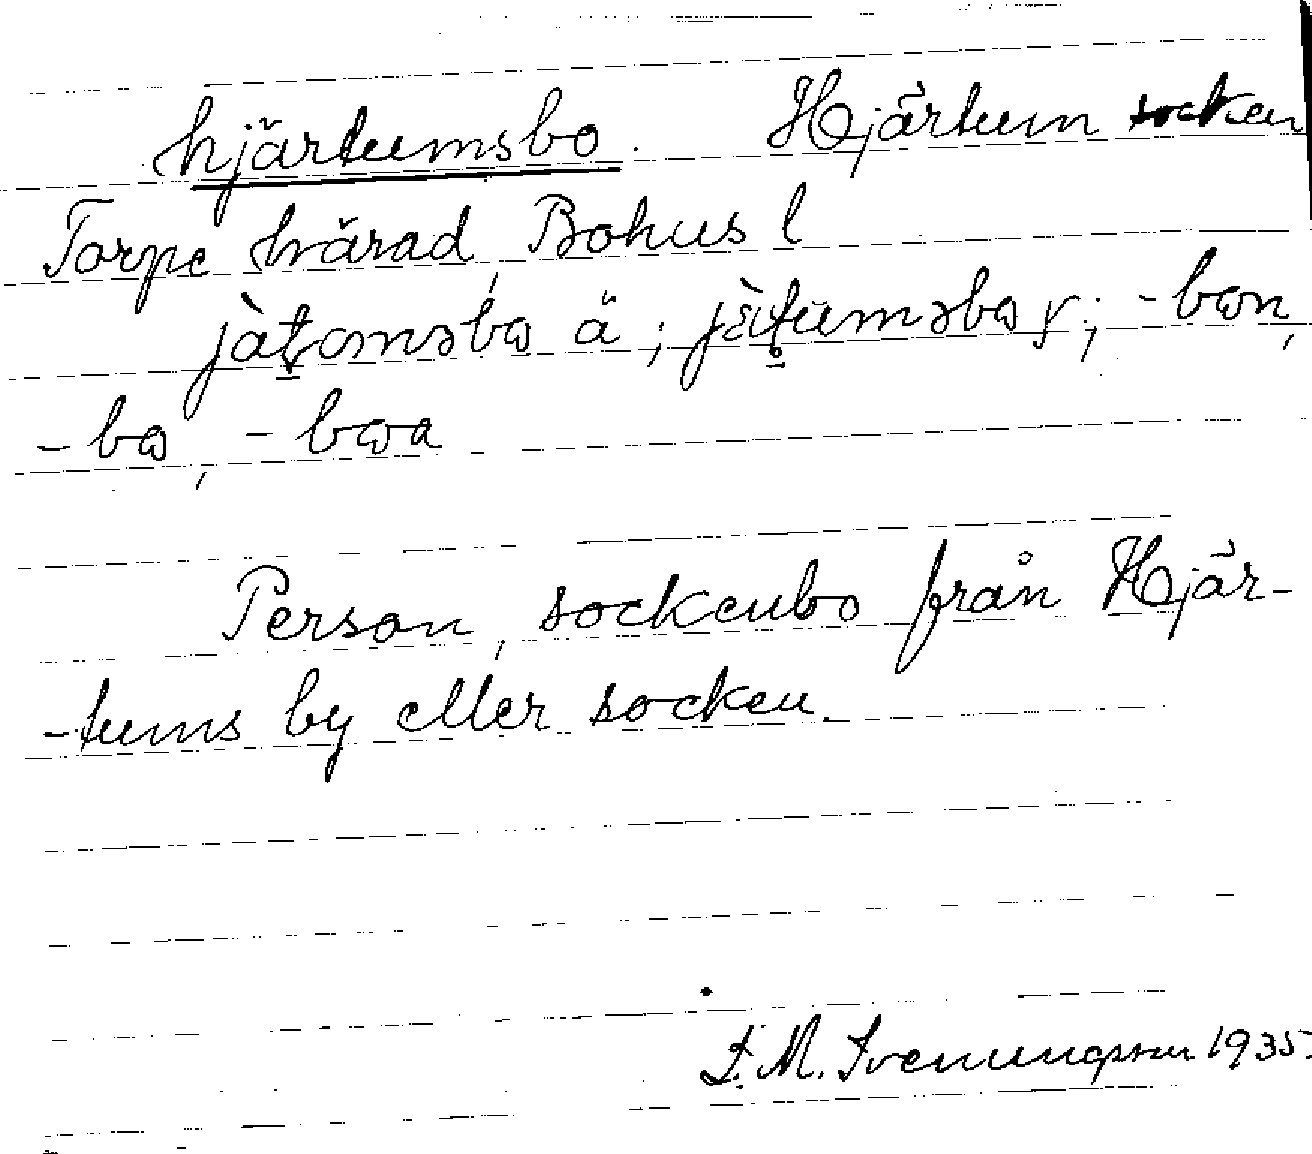 hjärtumsbo. Hjärtum socken
Torpe härad, Bohus l
jàt̠omsbɷ ä; jɛ̀t̠umsbɷ y; -bɷn,
-bɷ, -bɷa
Person, sockenbo från Hjär-
-tums by eller socken
F. M. Svenungsson 1935.